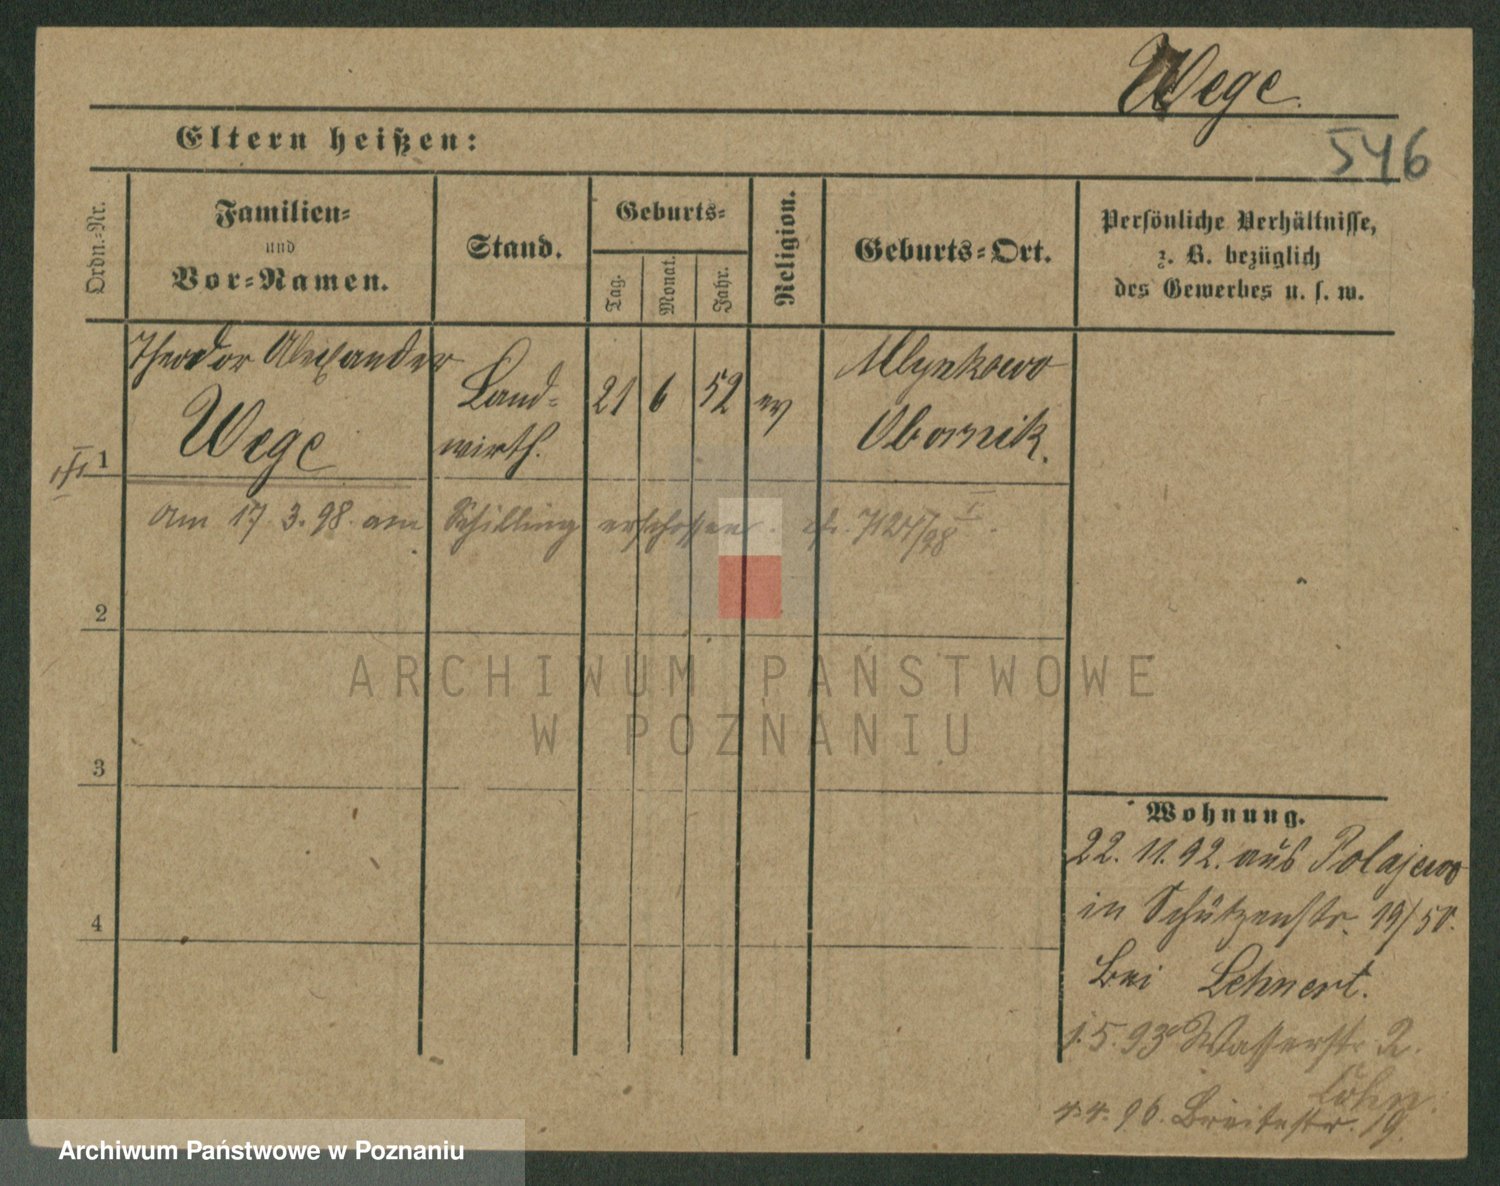 Wege.
546
Eltern heißen:
Ordn.-Nr.
Familien-
und
Vor-Namen.
Stand.
Geburts-
Tag.
Monat.
Jahr.
Religion.
Geburts-Ort.
Persönliche Verhältnisse,
z. B. bezüglich
des Gewerbes u. s. w.
1
Theodor Alexander
Wege
Land-
wirth.
21
6
52
ev
Mlynkowo
Obornik.
Am 17. 3. 98. am Schilling erschossen. cfr. 7124/98 I.
2
3
4
ARCHIWUM PAŃSTWOWE
W POZNANIU
Wohnung.
22. 11. 92. aus Polajewo
in Schützenstr. 19/50.
bei Lehnert.
1. 5. 93 Wasserstr. 2.
4. 96. Breitestr. 19.
Archiwum Państwowe w Poznaniu